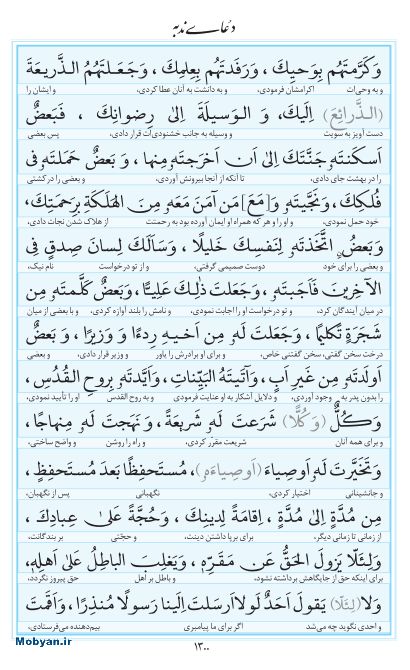 دعای ندبه
وَكَرَّمتَهُم بِوَحيِكَ ، وَرَفَدتَهُم بِعِلمِكَ ، وَجَعَلتَهُمُ الذَّريعَةَ
و به وحی‌ات اکرامشان فرمودی، و به دانشت به آنان عطا کردی، و ایشان را
(الذَّرائِعَ) اِلَيكَ، وَ الوَسيلَةَ اِلىٰ رِضوانِكَ ، فَبَعضٌ
دست آویز به سویت و وسیله به جانب خشنودی‌ات قرار دادی، پس بعضی
اَسكَنتَهُ جَنَّتَكَ اِلىٰ اَن اَخرَجتَهُ مِنها ، وَ بَعضٌ حَمَلتَهُ فی
را در بهشت جای دادی، تا آنکه از آنجا بیرونش آوردی، و بعضی را در کشتی
فُلكِكَ، وَنَجَّيتَهُ وَ[مَعَ] مَن آمَنَ مَعَهُ مِنَ الهَلَكَةِ بِرَحمَتِكَ،
خود حمل نمودی، و او را و هر که همراه او ایمان آورده بود به رحمتت از هلاک شدن نجات دادی،
وَ بَعضٌ اتَّخَذتَهُ لِنَفسِكَ خَليلًا ، وَسَأَلَكَ لِسانَ صِدقٍ فِی
و بعضی را برای خود دوست صمیمی گرفتی، و از تو درخواست نام نیک،
الآخِرينَ فَاَجَبتَهُ ، وَجَعَلتَ ذٰلِكَ عَلِيًّا، وَبَعضٌ كَلَّمتَهُ مِن
در میان آیندگان کرد، و تو درخواست او را اجابت نمودی، و نامش را بلند آوازه کردی، و با بعضی از میان
شَجَرَةٍ تَكليمًا ، وَجَعَلتَ لَهُ مِن اَخيهِ رِدءًا وَ وَزيرًا ، وَ بَعضٌ
درخت سخن گفتی، سخن گفتنی خاص، و برای او برادرش را یاور و وزیر قرار دادی، و بعضی
اَولَدتَهُ مِن غَيرِ اَبٍ ، وَآتَيتَهُ البَيِّناتِ، وَاَيَّدتَهُ بِروحِ القُدُسِ ،
را بدون پدر به وجود آوردی، و دلایل آشکار به او عنایت فرمودی و به روح القدس او را تأیید نمودی،
وَ كُلٌّ (وَ كُلًّا) شَرَعتَ لَهُ شَريعَةً ، وَ نَهَجتَ لَهُ مِنهاجًا،
و برای همه آنان شریعت مقرّر کردی، و راه را روشن و واضح ساختی،
وَ تَخَيَّرتَ لَهُ اَوصِياءَ (اَوصِياءَهُ) ، مُستَحفِظًا بَعدَ مُستَحفِظٍ ،
و جانشینانی اختیار کردی، نگهبانی پس از نگهبان،
مِن مُدَّةٍ اِلىٰ مُدَّةٍ ، اِقامَةً لِدينِكَ ، وَ حُجَّةً عَلىٰ عِبادِكَ ،
از زمانی تا زمانی دیگر، برای برپا داشتن دینت، و حجّتی بر بندگانت،
وَ لِئَلّا يَزولَ الحَقُّ عَن مَقَرِّهِ، وَ يَغلِبَ الباطِلُ عَلىٰ اَهلِهِ،
برای اینکه حق از جایگاهش برداشته نشود، و باطل بر اهل حق پیروز نگردد،
وَلا (لِئَلّا) يَقولَ اَحَدٌ لَولا اَرسَلتَ اِلَينا رَسولًا مُنذِرًا ، وَ اَقَمتَ
و احدی نگوید چه می‌شد اگر برای ما پیامبری بیم‌دهنده می‌فرستادی،
۱۳۰۰
Mobyan.ir